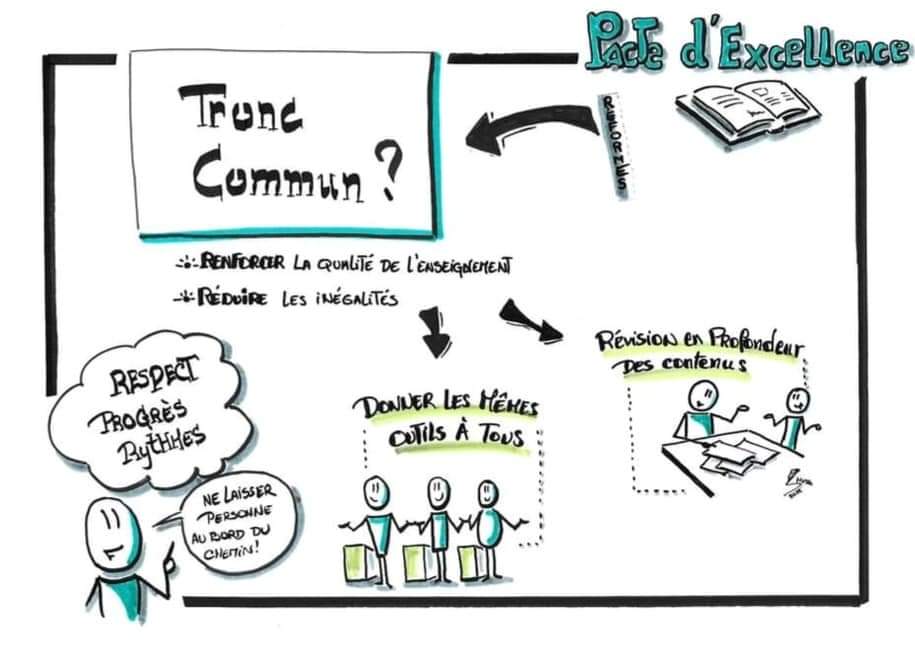 Pacte d'Excellence
RÉFORMES
Tronc
Commun ?
RENFORCER LA QUALITÉ DE L'ENSEIGNEMENT
RÉDUIRE LES INÉGALITÉS
RÉVISION EN PROFONDEUR
DES CONTENUS
DONNER LES MÊMES
OUTILS À TOUS
RESPECT
PROGRÈS
RYTHMES
NE LAISSER
PERSONNE
AU BORD DU
CHEMIN !